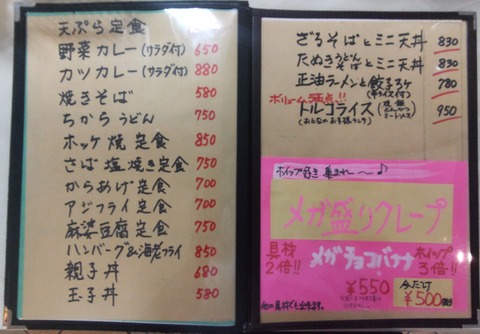 天ぷら定食
野菜カレー(サラダ付) 650
カツカレー(サラダ付) 880
焼きそば 580
ちからうどん 580
ホッケ焼定食 850
さば塩焼き定食 750
からあげ定食 700
アジフライ定食 700
麻婆豆腐定食 750
ハンバーグ&海老フライ 850
親子丼 680
玉子丼 580
ざるそばとミニ天丼 830
たぬきうどん
そばとミニ天丼 830
正油ラーメンと餃子3ヶ 780
(半ライス付)
ボリューム満点!!
トルコライス 950
(おとなのお子様ランチ)
ホイップ好き集まれ〜♪
メガ盛りクレープ
具材2倍!!
メガチョコバナナ
ホイップ3倍!!
¥550
今だけ
¥500
他の具材でも出来ます。